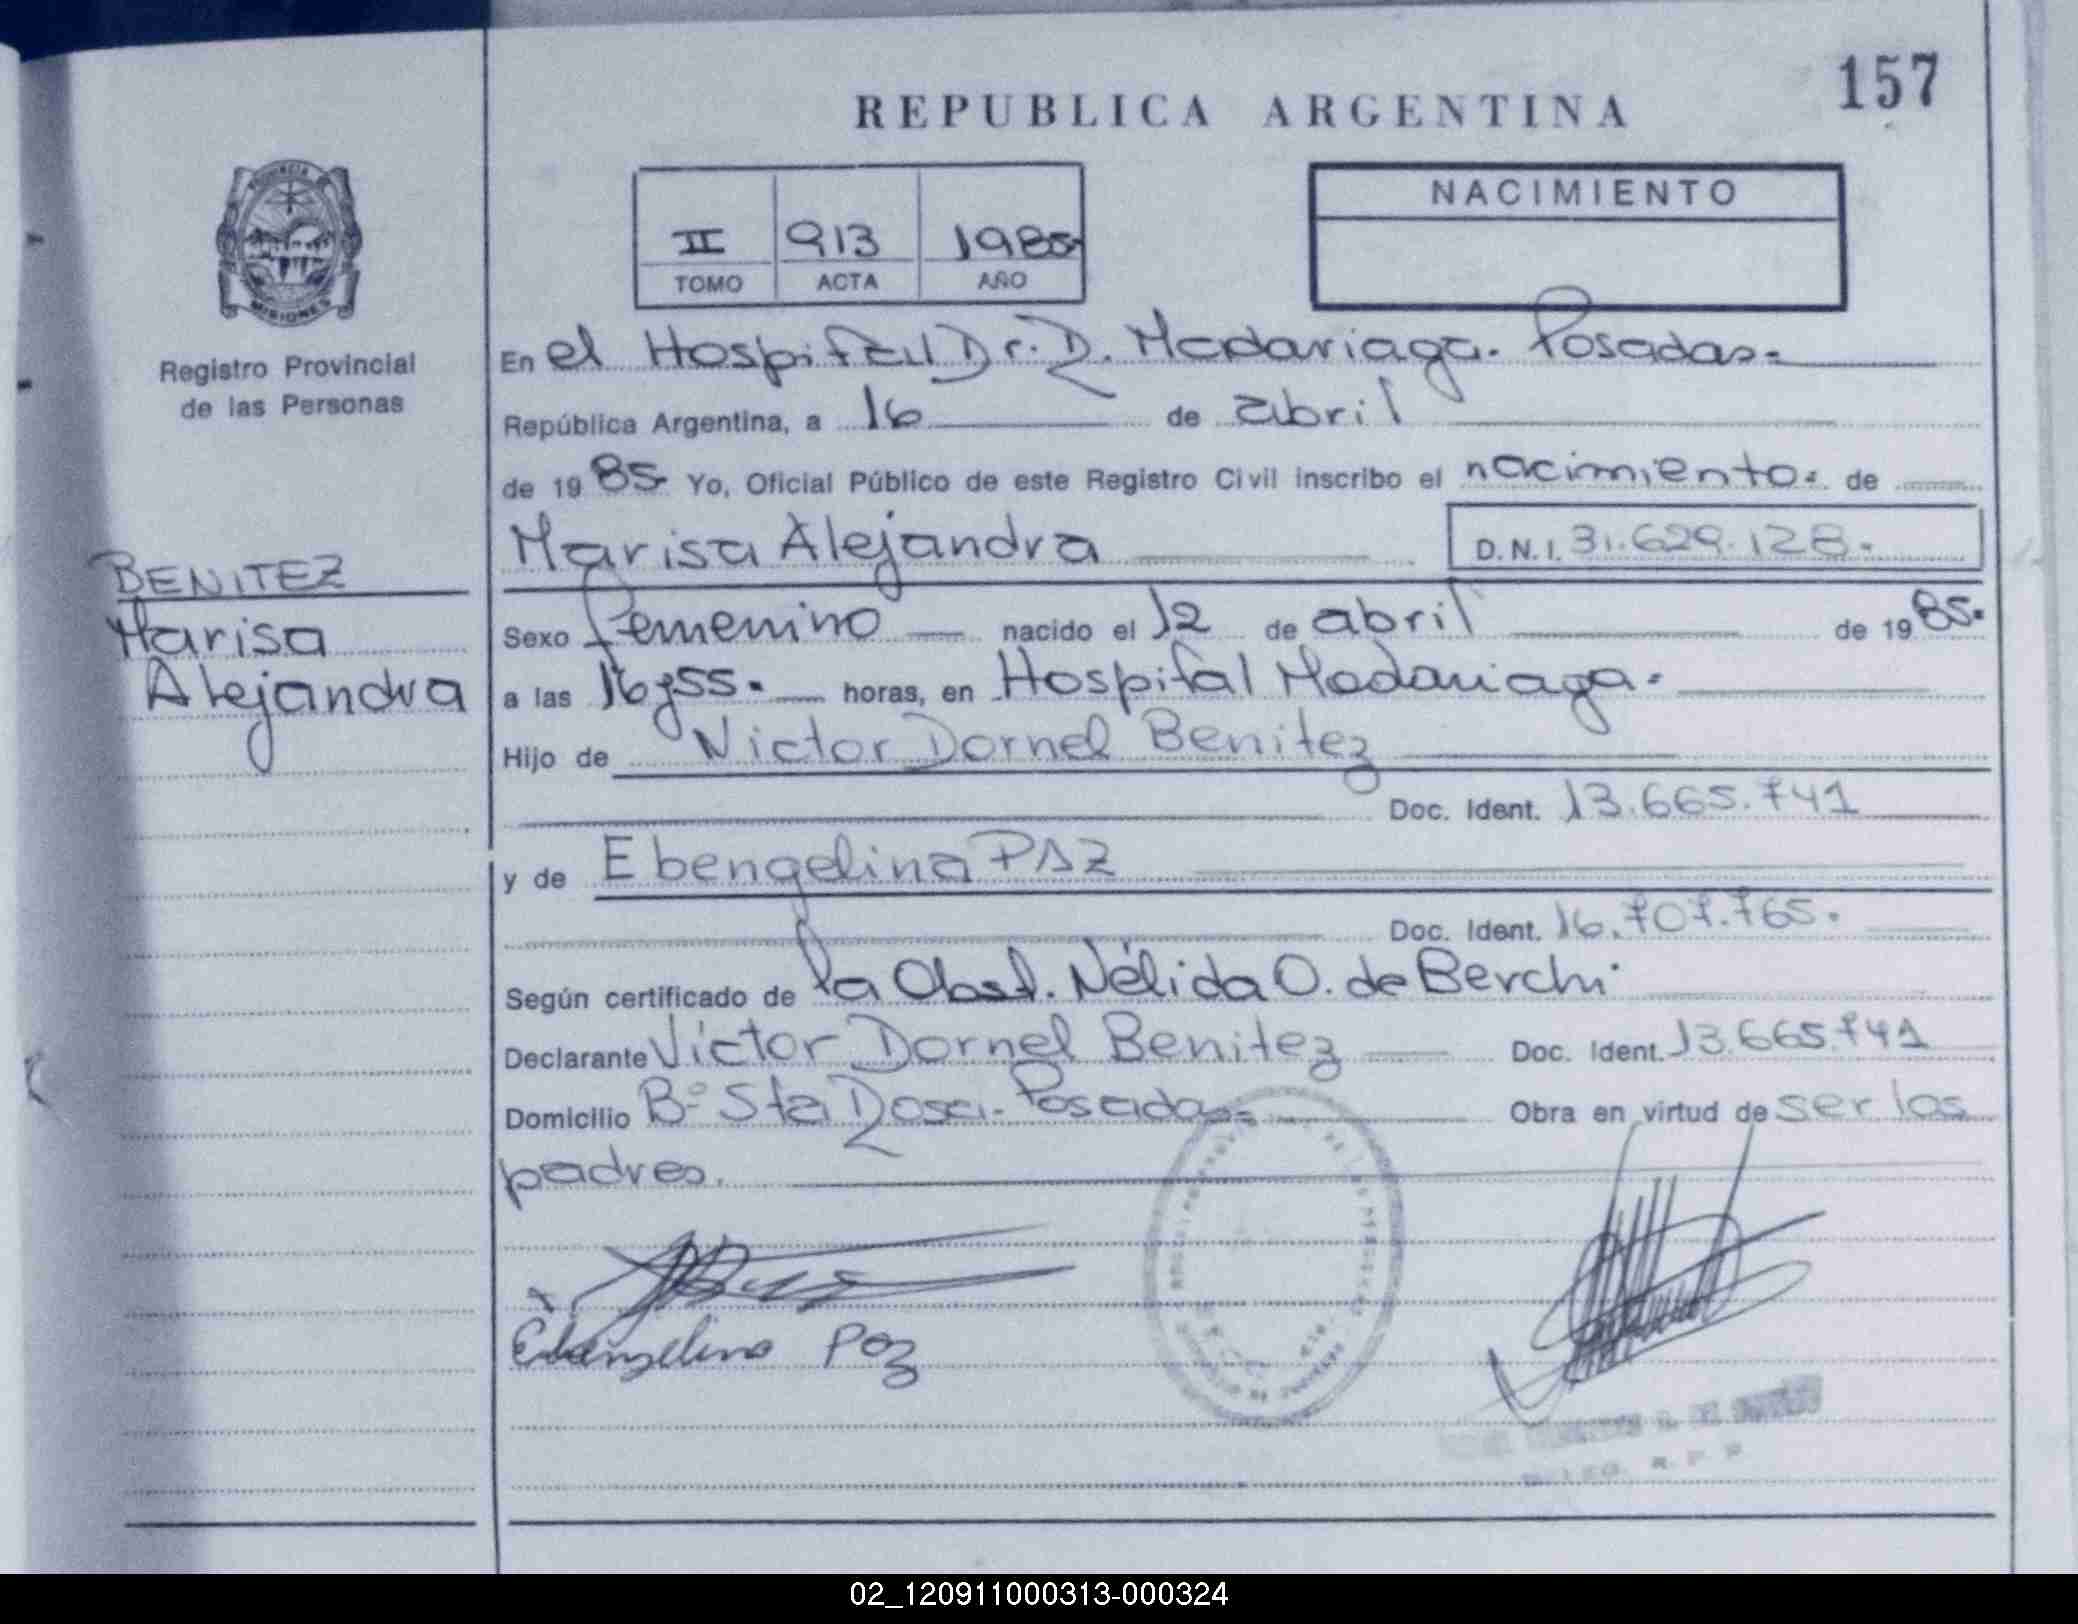 157
REPUBLICA ARGENTINA
NACIMIENTO
II 913 1985
TOMO ACTA AÑO
PROVINCIA
MISIONES
Registro Provincial
de las Personas
BENITEZ
Marisa
Alejandra
En el Hospital Dr. R. Madariaga. Posadas.
República Argentina, a 16 de abril
de 1985 Yo, Oficial Público de este Registro Civil inscribo el nacimiento. de
Marisa Alejandra D.N.I. 31.629.128.
Sexo femenino nacido el 12 de abril de 1985.
a las 16y55. horas, en Hospital Madariaga.
Hijo de Victor Dornel Benitez
Doc. Ident. 13.665.741
y de Ebengelina PAZ
Doc. Ident. 16.707.765.
Según certificado de la Obst. Nélida O. de Berchi
Declarante Victor Dornel Benitez Doc. Ident. 13.665.741
Domicilio Bº Sta Rosa. Posadas. Obra en virtud de ser los
padres.
Ebangelina Paz
02_120911000313-000324